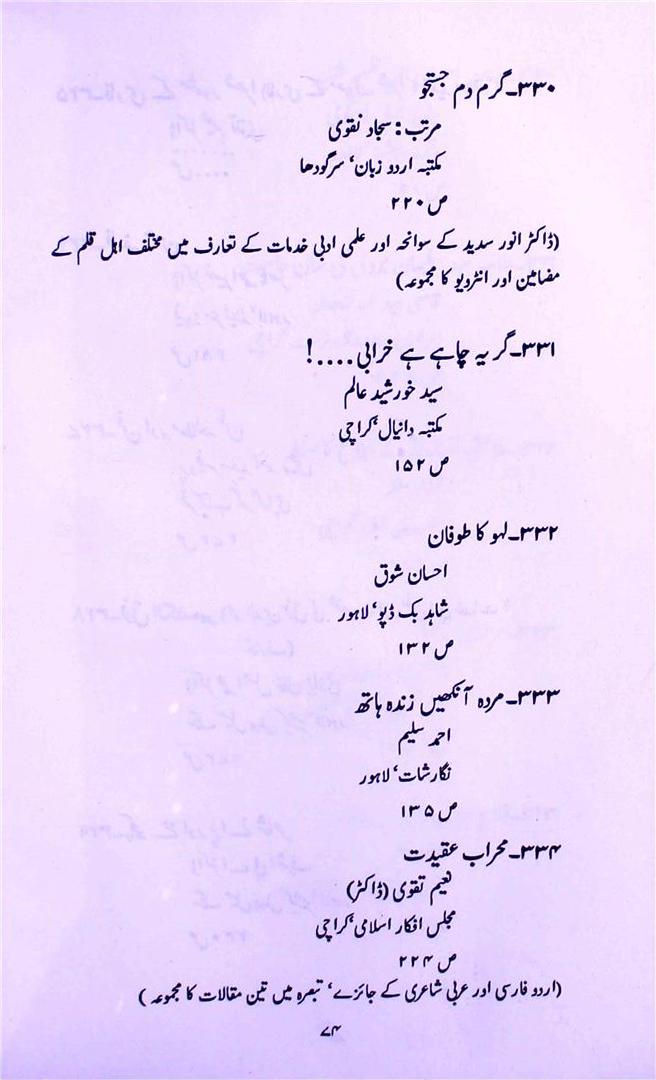 ۳۳۰۔گرم دم جستجو
مرتب: سجاد نقوی
مکتبہ اردو زبان‘ سرگودھا
ص ۲۲۰
(ڈاکٹر انور سدید کے سوانحہ اور علمی ادبی خدمات کے تعارف میں مختلف اہل قلم کے
مضامین اور انٹرویو کا مجموعہ)
۳۳۱۔گر یہ چاہے ہے خرابی ....!
سید خورشید عالم
مکتبہ دانیال‘ کراچی
ص ۱۵۲
۳۳۲۔لہو کا طوفان
احسان شوق
شاہد بک ڈپو‘ لاہور
ص ۱۳۲
۳۳۳۔مردہ آنکھیں زندہ ہاتھ
احمد سلیم
نگارشات‘ لاہور
ص ۱۳۵
۳۳۴۔محراب عقیدت
نعیم تقوی (ڈاکٹر)
مجلس افکار اسلامی‘ کراچی
ص ۲۲۴
(اردو فارسی اور عربی شاعری کے جائزے‘ تبصرہ میں تین مقالات کا مجموعہ)
۷۴